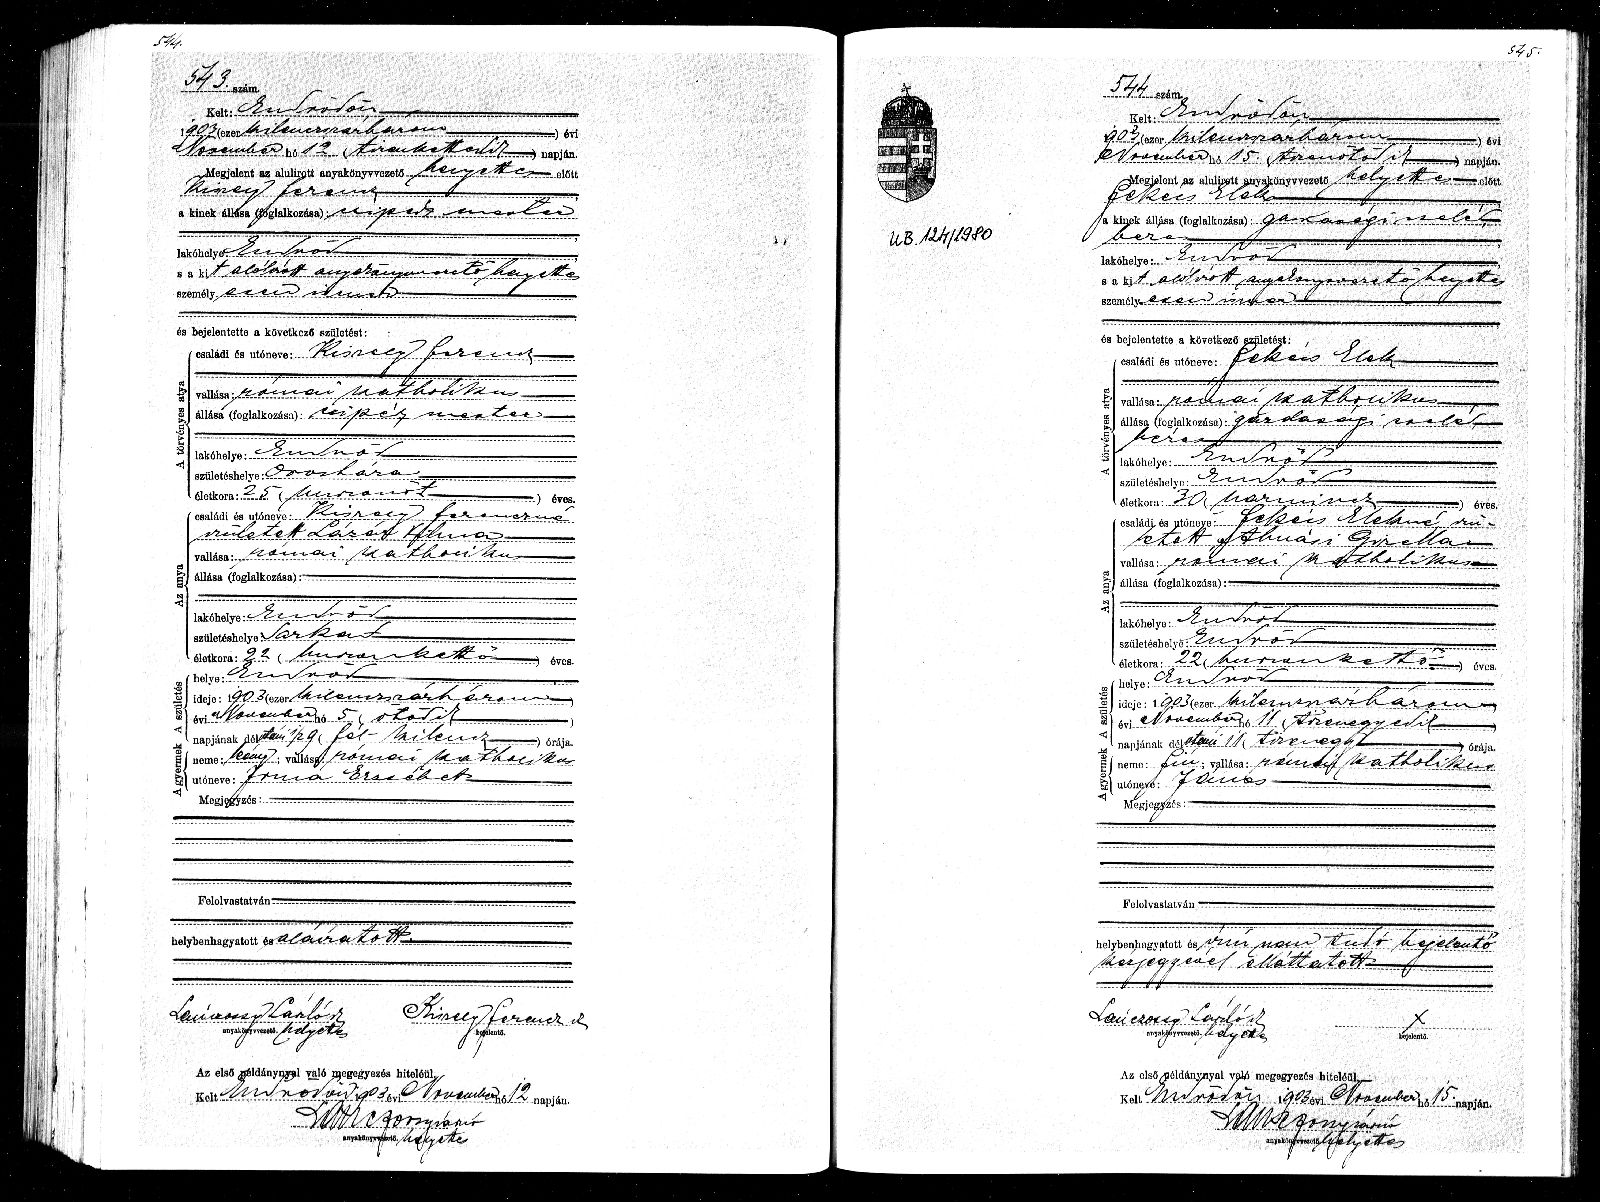 544.
543. szám.
Kelt: Endrődön
1903 (ezer kilenczszázhárom) évi
November hó 12 (tizenkettedik) napján.
Megjelent az alulirott anyakönyvvezető helyettes előtt
Királly Ferencz
a kinek állása (foglalkozása): czipész mester
lakóhelye Endrőd
s a kit alólirott anyakönyvvezető helyettes
személyesen ismer
és bejelentette a következő születést:
A törvényes atya
családi és utóneve: Királly Ferencz
vallása: római katholikus
állása (foglalkozása): czipész mester
lakóhelye: Endrőd
születéshelye: Orosháza
életkora: 25 (huszonöt) éves.
Az anya
családi és utóneve: Királly Ferenczné
született Lázár Ilma
vallása: római katholikus
állása (foglalkozása):
lakóhelye: Endrőd
születéshelye: Sarkad
életkora: 22 (huszonkettő) éves.
A születés
helye: Endrőd
ideje: 1903 (ezer kilenczszázhárom)
évi November hó 5 (ötödik)
napjának dél utáni 1/2 9 (fél kilencz) órája.
A gyermek
neme: leány; vallása: római katholikus
utóneve: Irma Erzsébet
Megjegyzés:
Felolvastatván
helybenhagyatott és aláiratott.
Lanczossy László anyakönyvvezető. helyettes
Királly Ferencz bejelentő.
Az első példánynyal való megegyezés hiteléül.
Kelt Endrődön 1903 évi November hó 12 napján.
anyakönyvvezető. helyettes
UB. 124/1980
545.
544 szám.
Kelt: Endrődön
1903 (ezer kilenczszázhárom) évi
November hó 15. (tizenötödik) napján.
Megjelent az alulirott anyakönyvvezető helyettes előtt
Fekécs Elek
a kinek állása (foglalkozása): gazdasági cseléd
béres
lakóhelye: Endrőd
s a kit alólirott anyakönyvvezető helyettes
személyesen ismer
és bejelentette a következő születést:
A törvényes atya
családi és utóneve: Fekécs Elek
vallása: római katholikus
állása (foglalkozása): gazdasági cseléd
béres
lakóhelye: Endrőd
születéshelye: Endrőd
életkora: 30 (harmincz) éves.
Az anya
családi és utóneve: Fekécs Elekné, szü-
letett Almási Gizella
vallása: római katholikus
állása (foglalkozása):
lakóhelye: Endrőd
születéshelye: Endrőd
életkora: 22 (huszonkettő) éves.
A születés
helye: Endrőd
ideje: 1903 (ezer kilenczszázhárom
évi November hó 11 (tizenegyedik
napjának dél utáni 11 (tizenegy) órája.
A gyermek
neme: fiú; vallása: római katholikus
utóneve: János
Megjegyzés:
Felolvastatván
helybenhagyatott és írni nem tudó bejelentő
kézjegyével elláttatott
Lanczossy László anyakönyvvezető. helyettes
x bejelentő.
Az első példánynyal való megegyezés hiteléül.
Kelt Endrődön 1903 évi November hó 15. napján.
anyakönyvvezető. helyettes